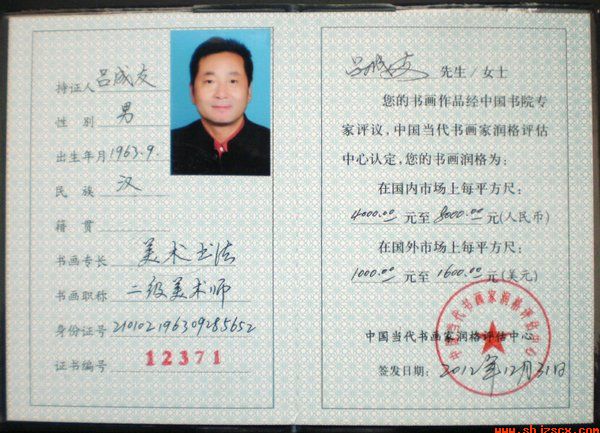 持证人 吕成友
性 别 男
出生年月 1963.9.
民 族 汉
籍 贯
书画专长 美术书法
书画职称 二级美术师
身份证号 210102196309285652
证书编号 12371
吕成友 先生/女士
您的书画作品经中国书院专
家评议,中国当代书画家润格评估
中心认定,您的书画润格为:
在国内市场上每平方尺:
4000.00 元至 8000.00 元(人民币)
在国外市场上每平方尺:
1000.00 元至 1600.00 元(美元)
中国当代书画家润格评估中心
中国当代书画家润格评估中心
签发日期: 2012年12月31日
www.shjzscx.com